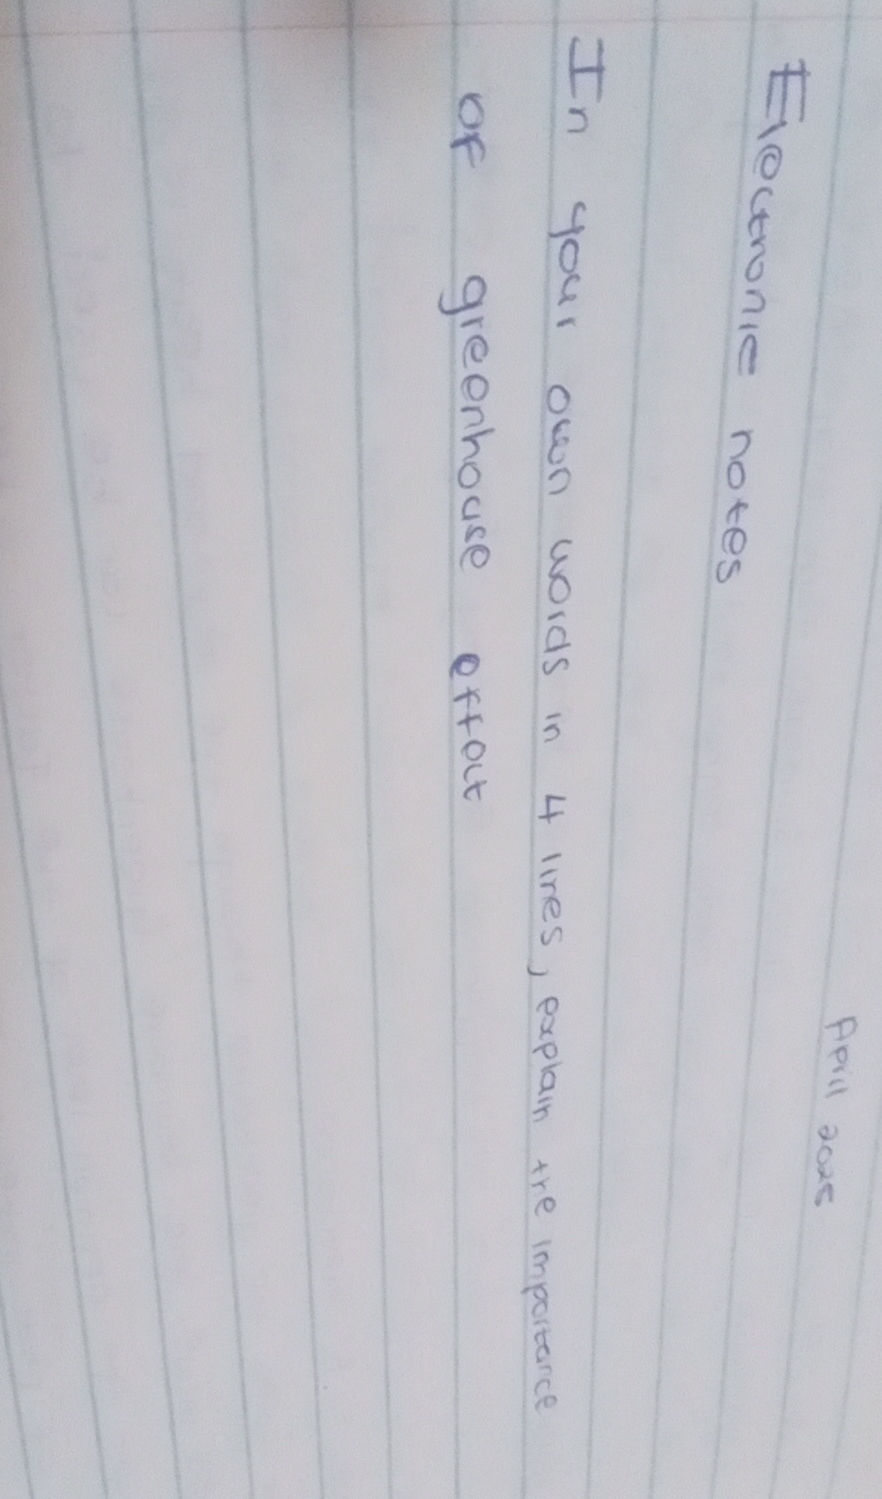 April 2025
Electronic notes
In your own words in 4 lines, explain the importance
of greenhouse effect